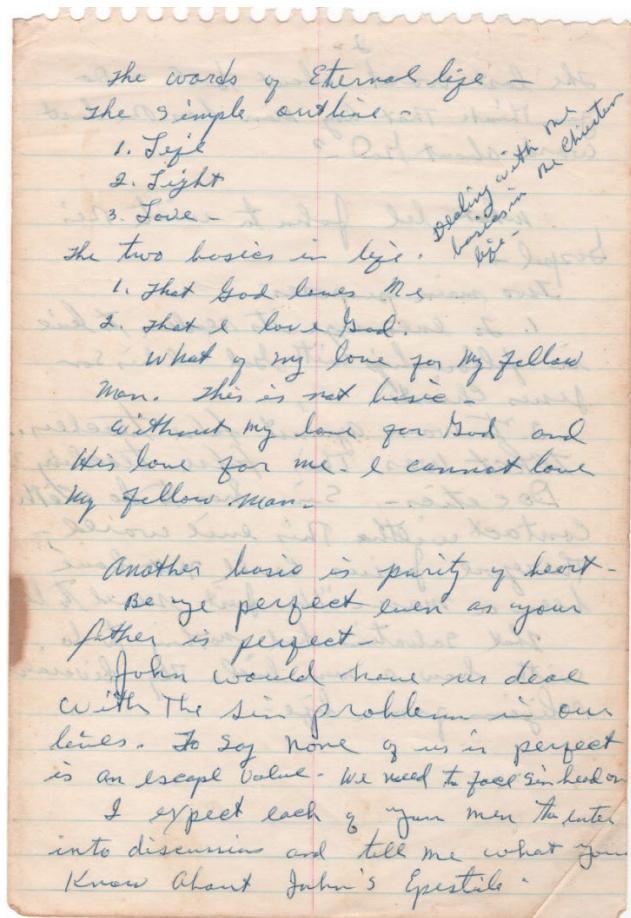 The words of Eternal life -
The simple outline -
1. Life
2. Light
3. Love -
Dealing with the
basics in the Christian
life -
The two basics in life.
1. That God loves Me
2. That I love God.
What of my love for my fellow
Man. This is not basic -
Without my love for God and
His love for me - I cannot love
my fellow man -
Another basic is purity of heart -
Be ye perfect even as your
father is perfect -
John would have us deal
with The sin problem in our
lives. To say none of us is perfect
is an escape value - We need to face sin head on
I expect each of you men to enter
into discussion and tell me what you
Know About John's Epistile.